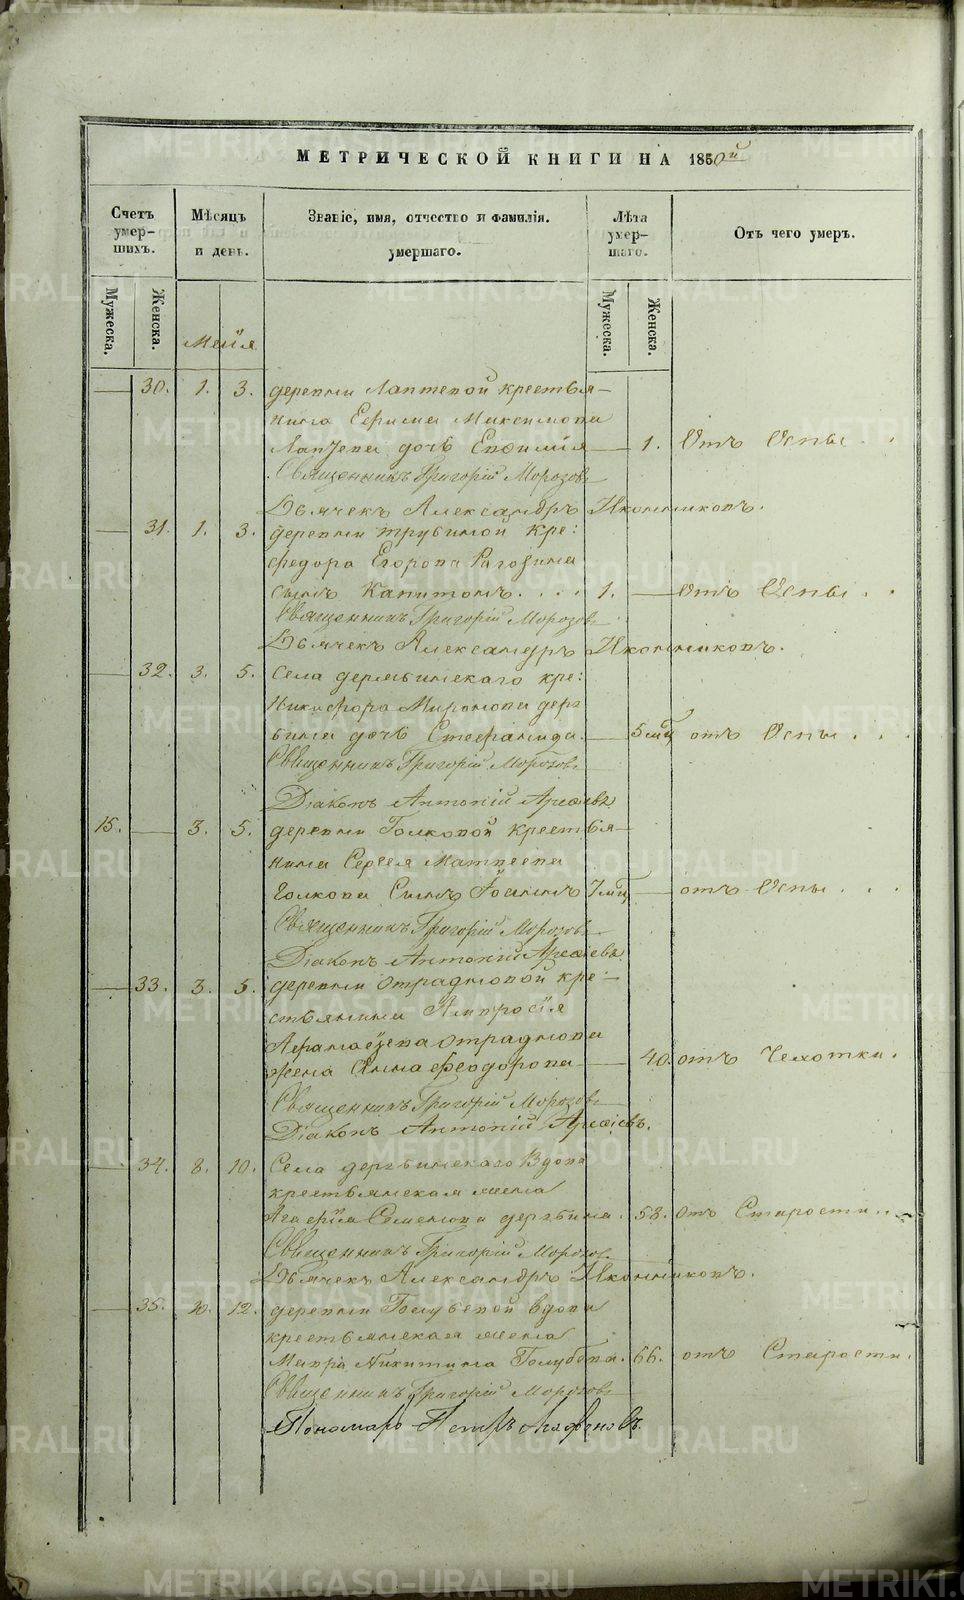 МЕТРИЧЕСКОЙ КНИГИ НА 1850й
Счетъ умер-шихъ.
Мѣсяцъ и день.
Званіе, имя, отчество и фамилія. умершаго.
Лѣта умер-шаго.
Отъ чего умеръ.
Мужеска. Женска. Мужеска. Женска.
Маія
30. 1. 3. деревни Лаптевой крестья-
нина Ефима Максимова
Лаптева дочь Евфимія 1. Отъ Оспы . .
Священникъ Григорій Морозовъ
Дьячекъ Александръ Иконниковъ.
31. 1. 3. деревни Трубиной кре:
Федора Егорова Рагозина
сынъ Капитонъ . . . . 1. Отъ Оспы . .
Священникъ Григорій Морозовъ
Дьячекъ Александръ Иконниковъ.
32. 3. 5. Села дерябинскаго кре:
Никифора Миронова деря
бина дочь Стефанида. 5 мц отъ Оспы . . .
Священникъ Григорій Морозовъ
Діаконъ Антоній Арефіевъ
15. 3. 5. деревни Голковой крестья-
нина Сергея Матвеева
Голкова Сынъ Іоаннъ 7 мц отъ Оспы . . .
Священникъ Григорій Морозовъ
Діаконъ Антоній Арефіевъ
33. 3. 5. деревни Отрадновой кре-
стьянина Амвросія
Афанасьева Отраднова
жена Анна Феодорова 40. отъ Чахотки.
Священникъ Григорій Морозовъ
Діаконъ Антоній Арефіевъ.
34. 8. 10. Села дерябинскаго Вдова
крестьянская жена
Агафія Семенова дерябина. 58. отъ Старости . .
Священникъ Григорій Морозовъ
Дьячекъ Александръ Иконниковъ.
35. 10. 12. деревни Голубевой вдова
крестьянская жена
Мавра Никитина Голубева. 66. отъ Старости.
Священникъ Григорій Морозовъ
Пономарь Петръ
METRIKI.GASO-URAL.RU